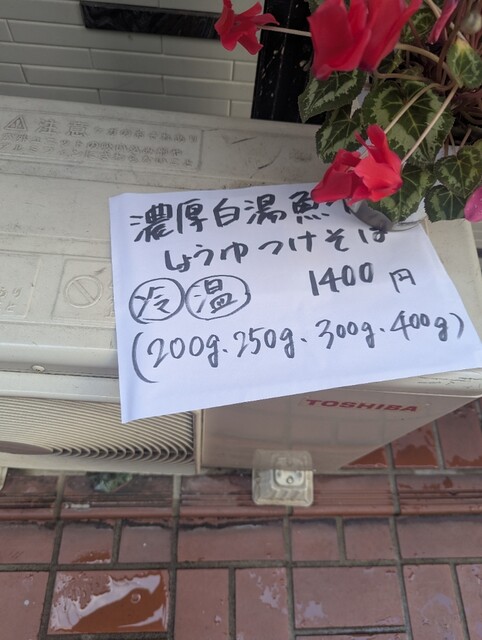 注意
濃厚白湯魚
しょうゆつけそば
冷 温 1400円
(200g、250g、300g、400g)
TOSHIBA